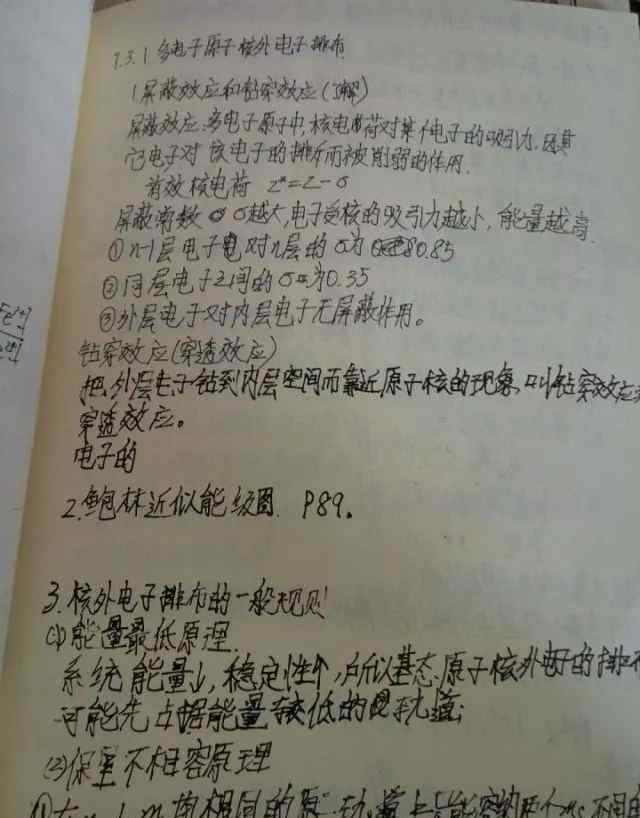 7.3.1 多电子原子核外电子排布
1 屏蔽效应和钻穿效应(了解)
屏蔽效应:多电子原子中,核电荷对某个电子的吸引力,因其
它电子对该电子的排斥而被削弱的作用.
有效核电荷 Z*=Z-σ
屏蔽常数 σ越大,电子受核的吸引力越小,能量越高.
①n-1层电子对n层的σ为0.85
②同层电子之间的σ为0.35
③外层电子对内层电子无屏蔽作用。
钻穿效应(穿透效应)
把外层电子钻到内层空间而靠近原子核的现象,叫钻穿效应
穿透效应。
电子的
2.鲍林近似能级图. P89。
3.核外电子排布的一般规则
(1)能量最低原理.
系统能量↓,稳定性↑,所以基态原子核外电子的排布
可能先占据能量较低的轨道;
(2)保里不相容原理
①在n l m 均相同的原 轨道上只能容纳两个ms不同的